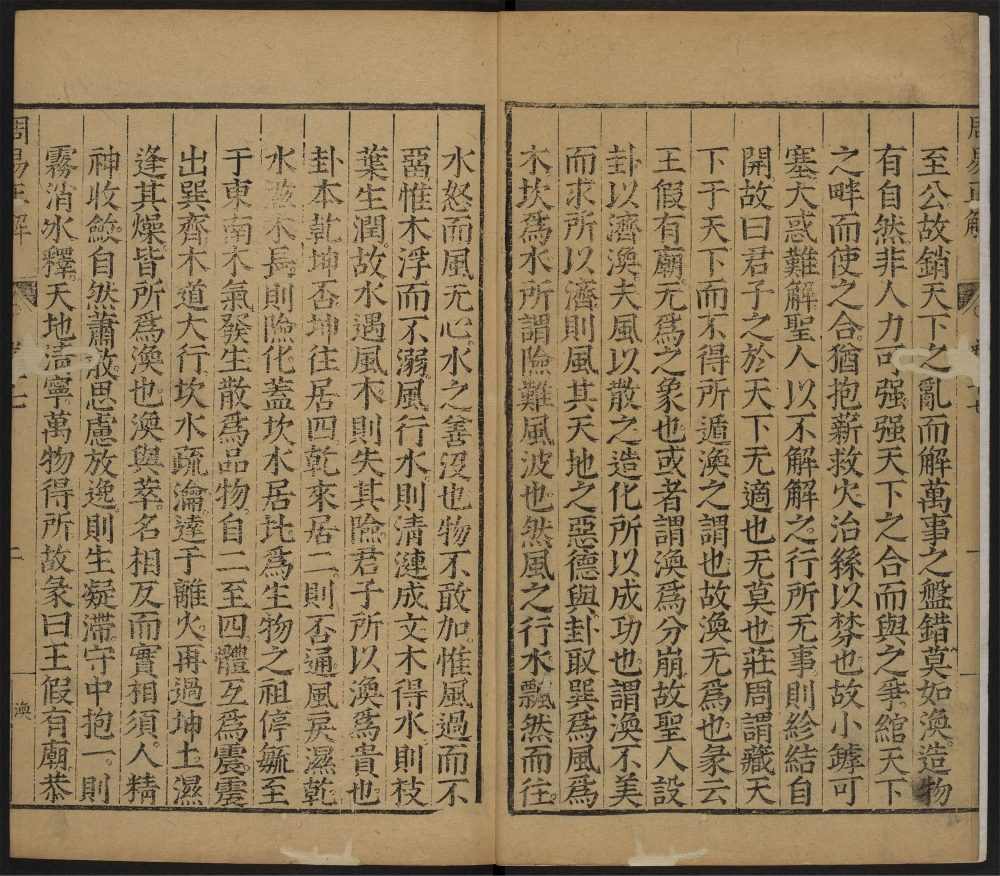 周易正解
至公故銷天下之亂而解萬事之盤錯莫如渙造物
有自然非人力可强强天下之合而與之爭綰天下
之畔而使之合猶抱薪救火治絲以棼也故小罅可
塞大惑難解聖人以不解解之行所无事則紾結自
開故曰君子之於天下无適也无莫也莊周謂藏天
下于天下而不得所遁渙之謂也故渙无爲也彖云
王假有廟无爲之象也或者謂渙爲分崩故聖人設
卦以濟渙夫風以散之造化所以成功也謂渙不美
而求所以濟則風其天地之惡德與卦取巽爲風爲
木坎爲水所謂險難風波也然風之行水飄然而往
水怒而風无心水之善沒也物不敢加惟風過而不
𨔶惟木浮而不溺風行水則清漣成文木得水則枝
葉生潤故水遇風木則失其險君子所以渙爲貴也
卦本乾坤否坤往居四乾來居二則否通風戾濕乾
水滋木長則險化蓋坎水居北爲生物之祖停毓至
于東南木氣發生散爲品物自二至四體互爲震震
出巽齊木道大行坎水疏瀹達于離火再過坤土濕
逢其燥皆所爲渙也渙與萃名相反而實相須人精
神收斂自然蕭散思慮放逸則生凝滯守中抱一則
霧消氷釋天地清寧萬物得所故彖曰王假有廟恭
周易正解
七
二
渙